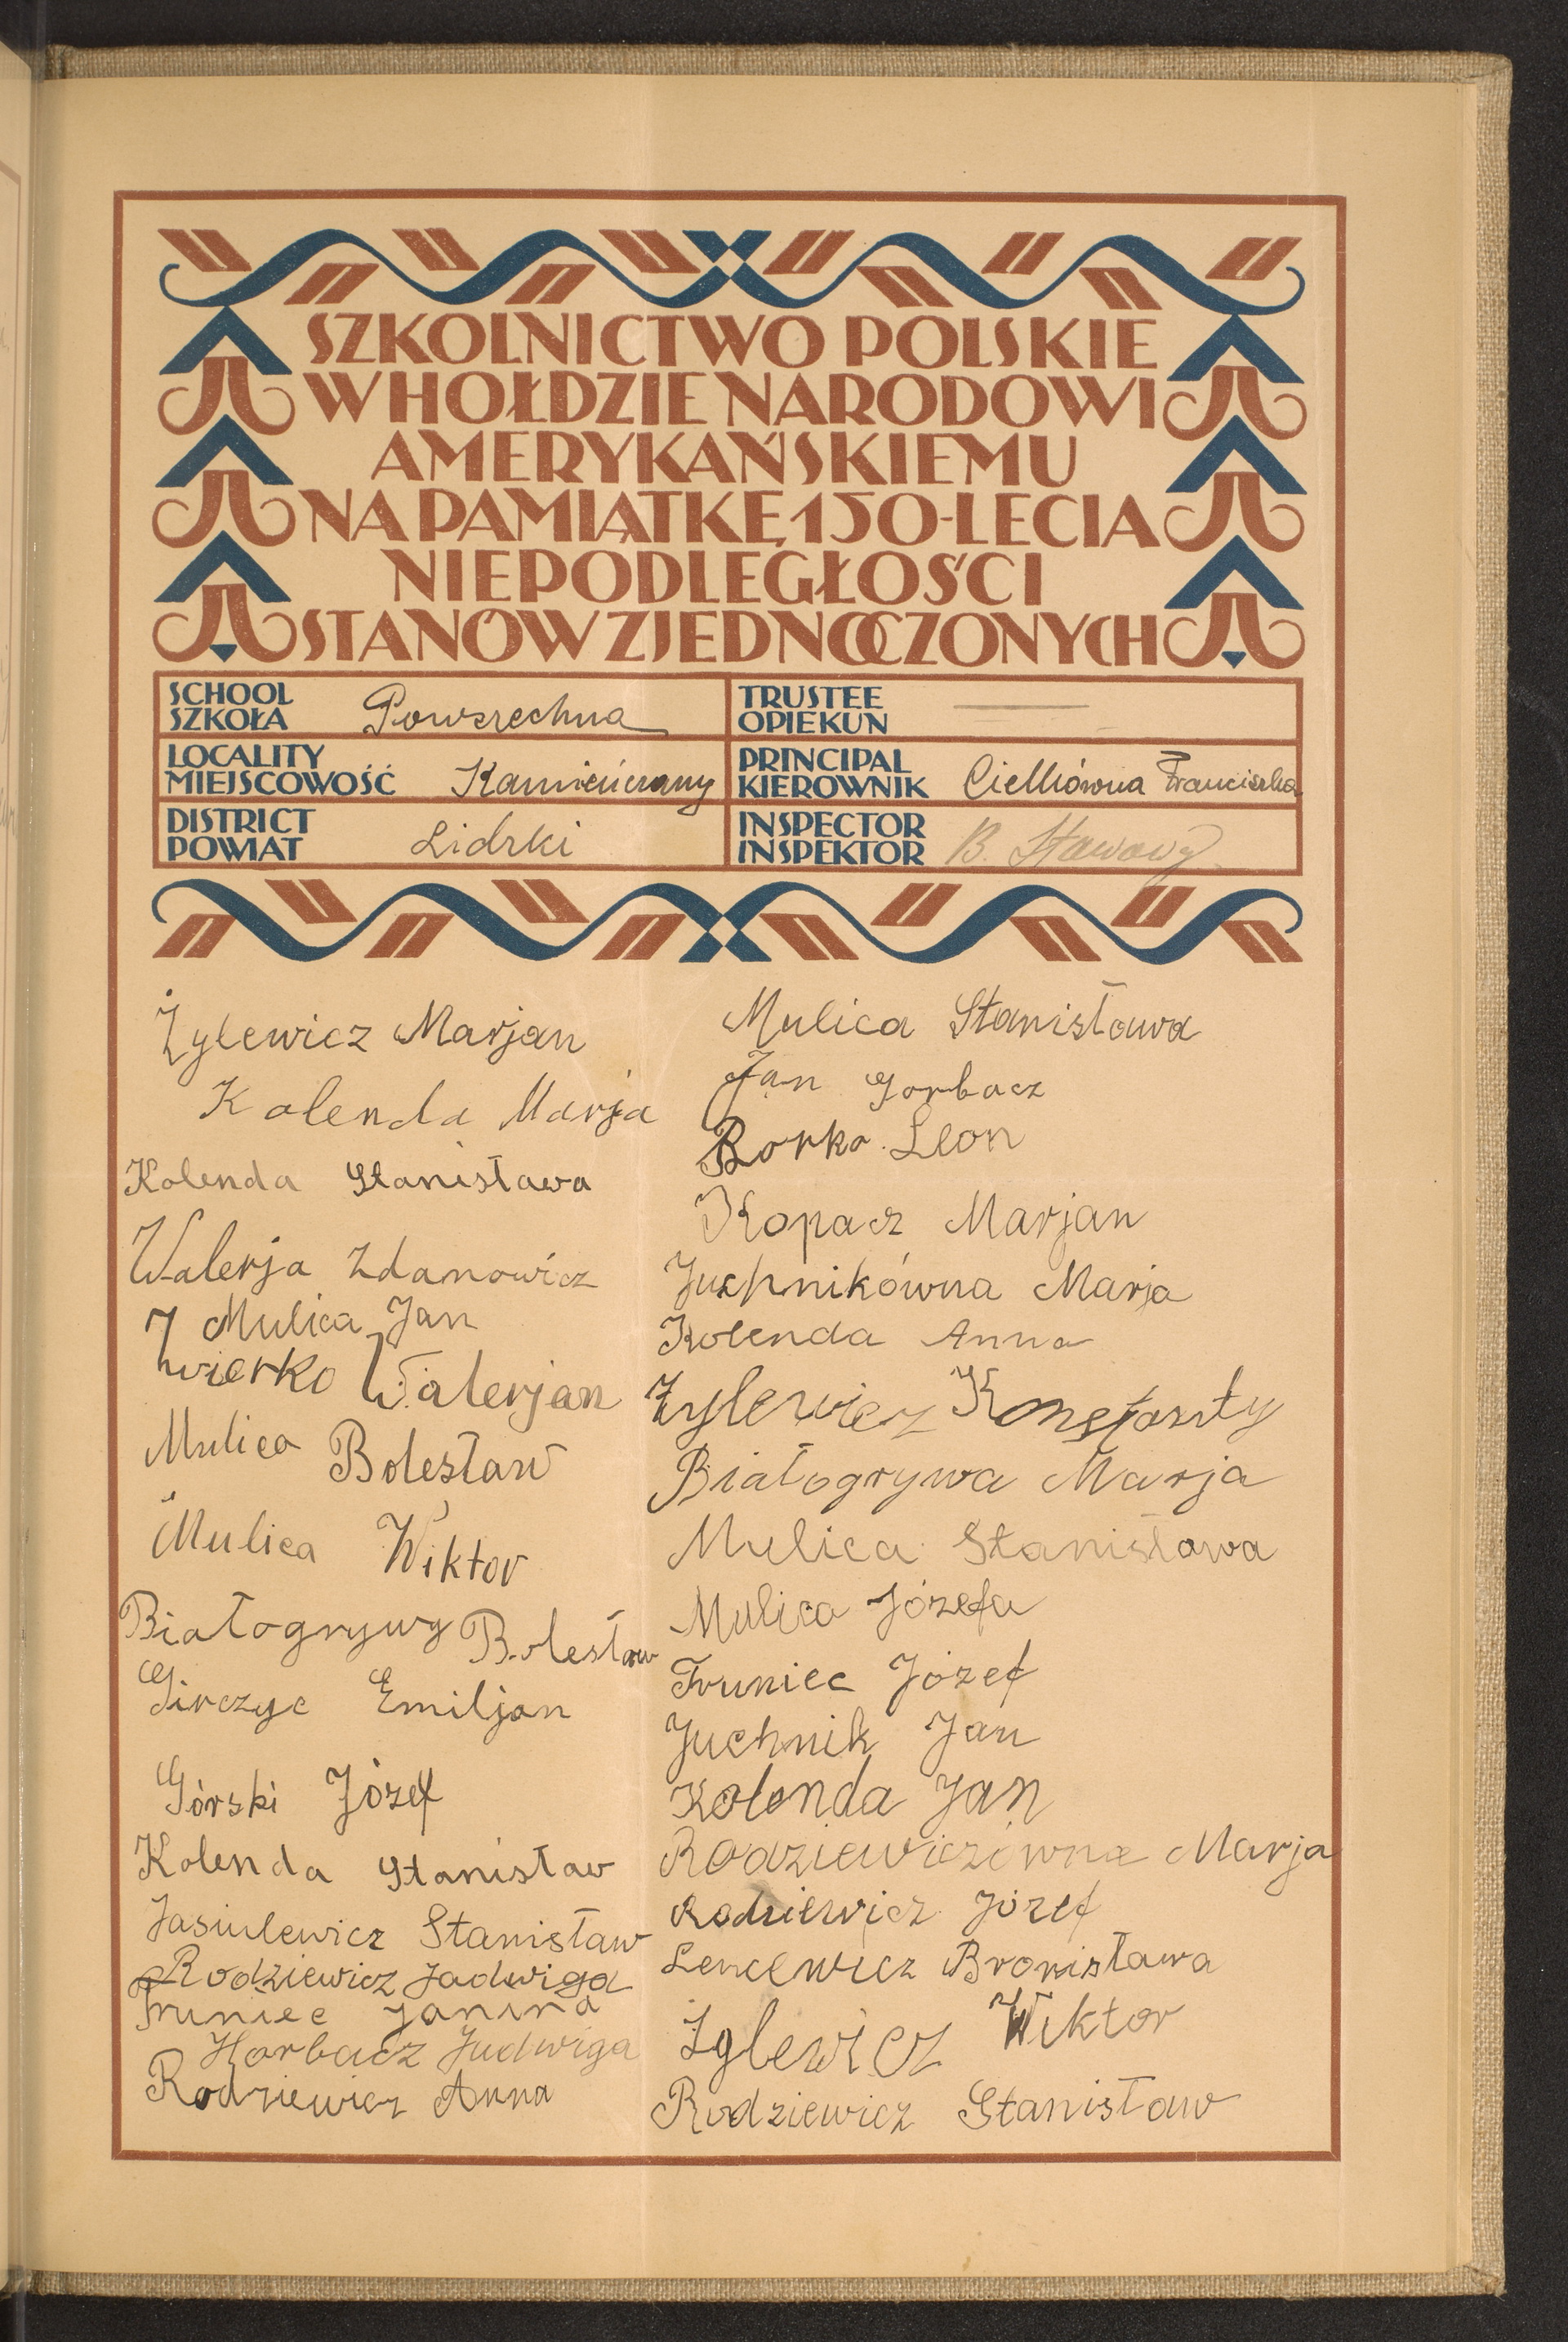 SZKOLNICTWO POLSKIE
W HOŁDZIE NARODOWI
AMERYKAŃSKIEMU
NA PAMIĄTKĘ 150-LECIA
NIEPODLEGŁOŚCI
STANÓW ZJEDNOCZONYCH
SCHOOL
SZKOŁA Powszechna
TRUSTEE
OPIEKUN
LOCALITY
MIEJSCOWOŚĆ Kamieńczany
PRINCIPAL
KIEROWNIK Franciszka
DISTRICT
POWIAT Lidzki
INSPECTOR
INSPEKTOR B. Stawowy
Żylewicz Marjan
Kolenda Marja
Kolenda Stanisława
Walerja Zdanowicz
Mulica Jan
Walerjan
Mulica Bolesław
Mulica Wiktor
Białogrywy Bolesław
Girczyc Emiljan
Górski Józef
Kolenda Stanisław
Jasiulewicz Stanisław
Rodziewicz Jadwiga
Fruniec Janina
Horbacz Jadwiga
Rodziewicz Anna
Mulica Stanisława
Jan Gorbacz
Borko Leon
Kopacz Marjan
Juchnikówna Marja
Kolenda Anna
Żylewicz Konstanty
Białogrywa Marja
Mulica Stanisława
Mulica Józefa
Fruniec Józef
Juchnik Jan
Kolenda Jan
Rodziewiczówna Marja
Rodziewicz Józef
Lencewicz Bronisława
Żylewicz Wiktor
Rodziewicz Stanisław